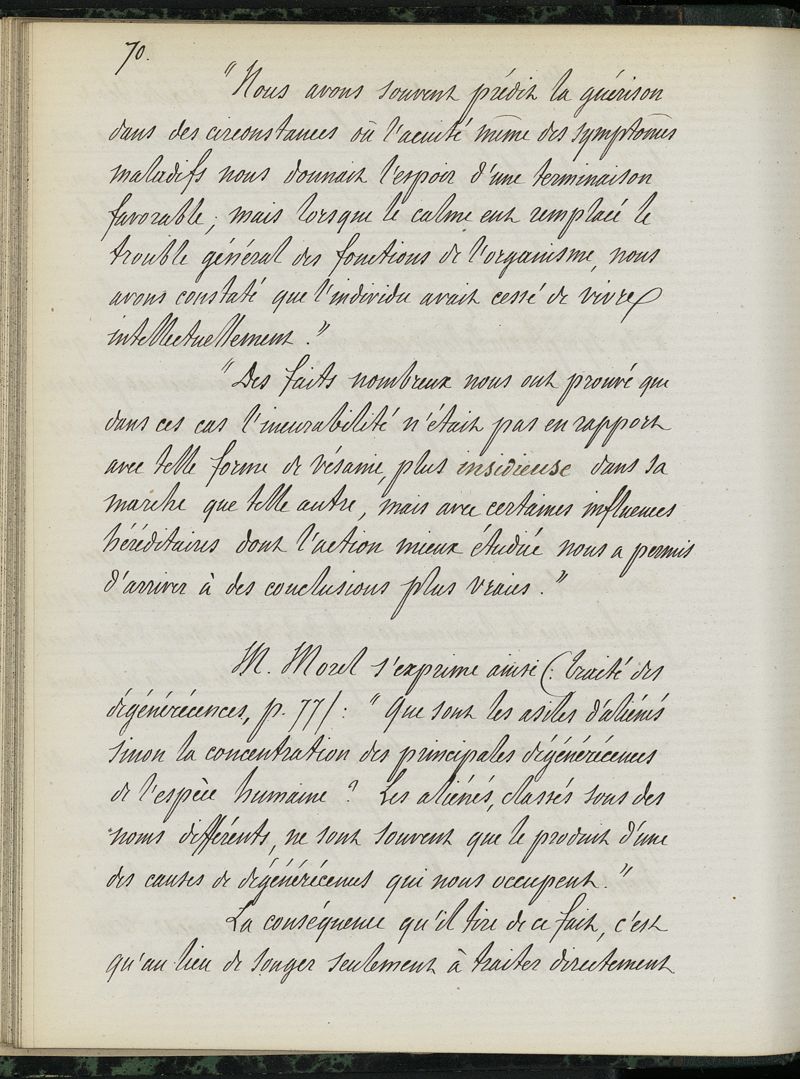 70.
"Nous avons souvent prédit la guérison
dans des circonstances où l'acuité même des symptômes
maladifs nous donnait l'espoir d'une terminaison
favorable; mais lorsque le calme eut remplacé le
trouble général des fonctions de l'organisme, nous
avons constaté que l'individu avait cessé de vivre
intellectuellement."
"Des faits nombreux nous ont prouvé que
dans ces cas l'incurabilité n'était pas en rapport
avec telle forme de vésanie, plus insidieuse dans sa
marche que telle autre, mais avec certaines influences
héréditaires dont l'action mieux étudiée nous a permis
d'arriver à des conclusions plus vraies."
M. Morel s'exprime ainsi (: traité des
dégénérécences, p. 77/: "Que sont les asiles d'aliénés
sinon la concentration des principales dégénérécences
de l'espèce humaine? Les aliénés, classés sous des
noms différents, ne sont souvent que le produit d'une
des causes de dégénérécences qui nous occupent."
La conséquence qu'il tire de ce fait, c'est
qu'au lieu de songer seulement à traiter directement